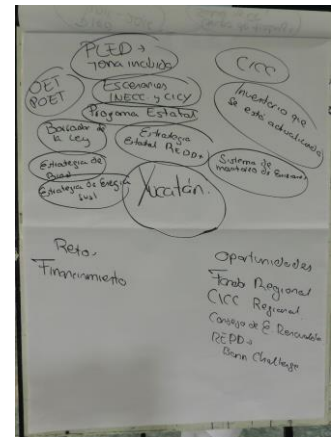 PLED →
zona incluida
CICC
OET
POET
Escenarios
INECC y CICY
Inventario que
se está actualizando
Programa Estatal
Borrador de
la Ley
Estrategia
Estatal REDD+
Sistema de
monitoreo de
Estrategia de
Estrategia de Energía
Yucatán.
Reto.
Financiamiento
Oportunidades
Fondo Regional
CICC Regional
Consejo de E. Renovable
REDD+
Bonn Challenge